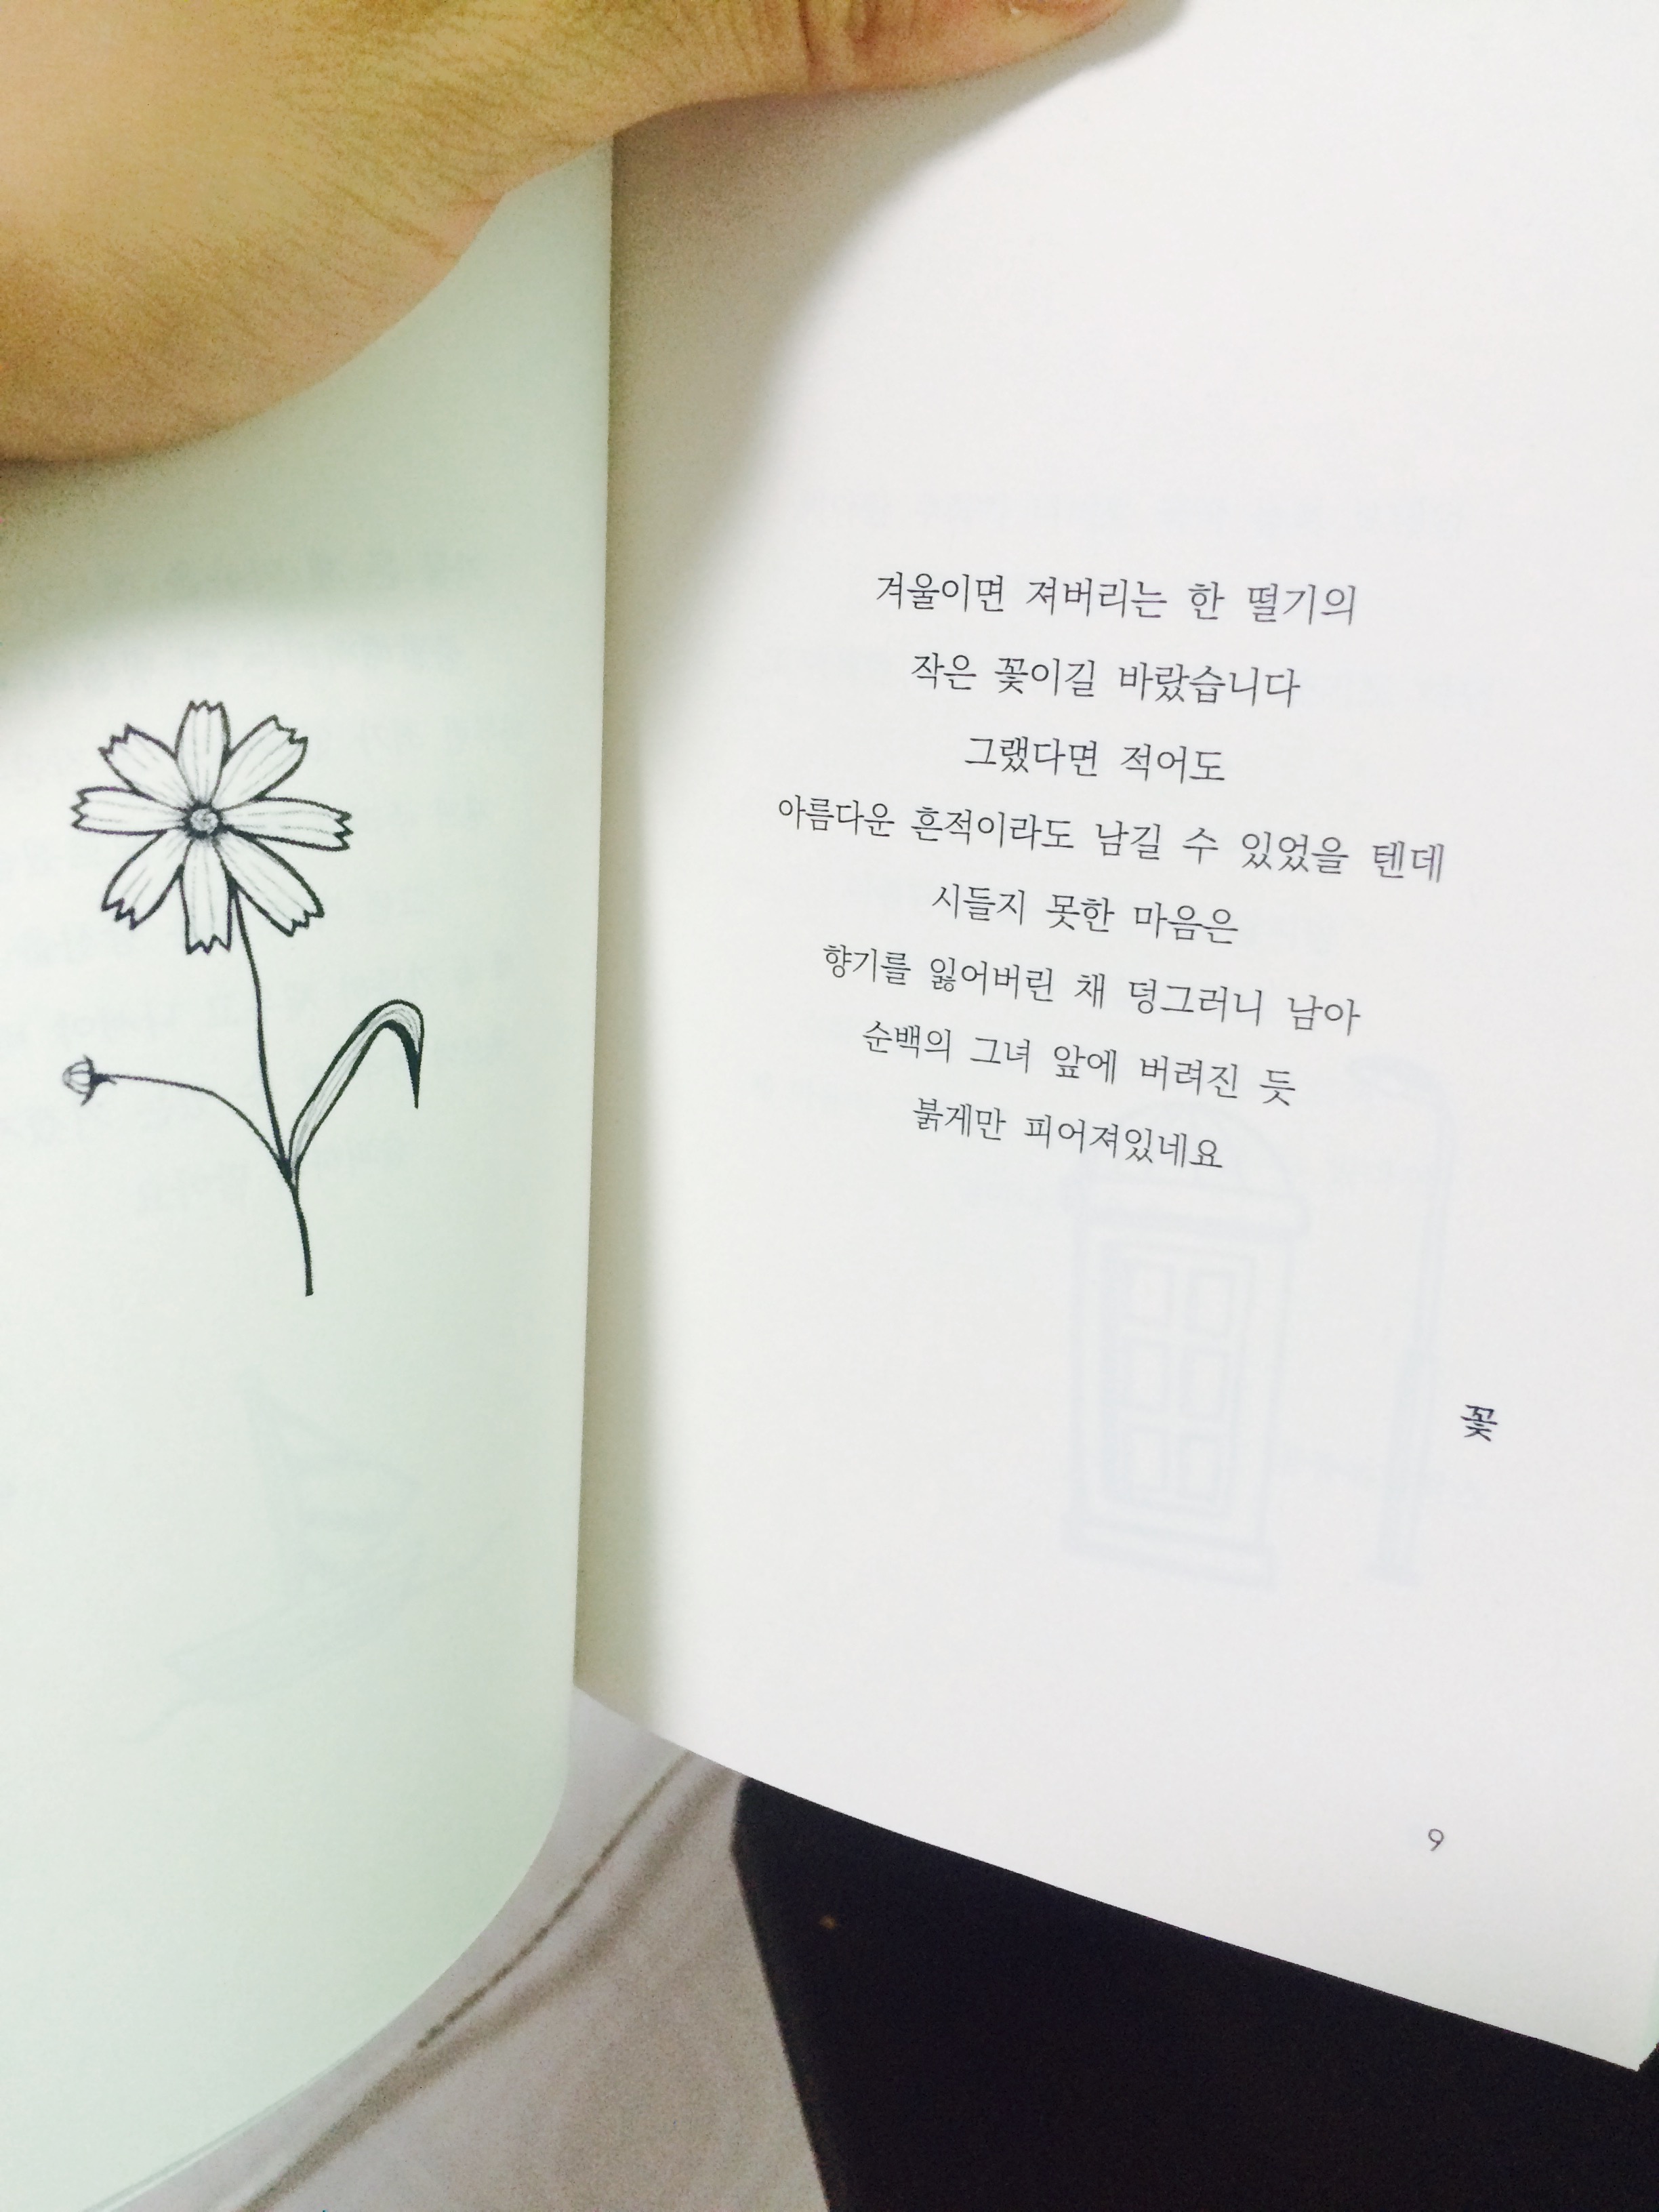 겨울이면 져버리는 한 떨기의
작은 꽃이길 바랐습니다
그랬다면 적어도
아름다운 흔적이라도 남길 수 있었을 텐데
시들지 못한 마음은
향기를 잃어버린 채 덩그러니 남아
순백의 그녀 앞에 버려진 듯
붉게만 피어져있네요
꽃
9